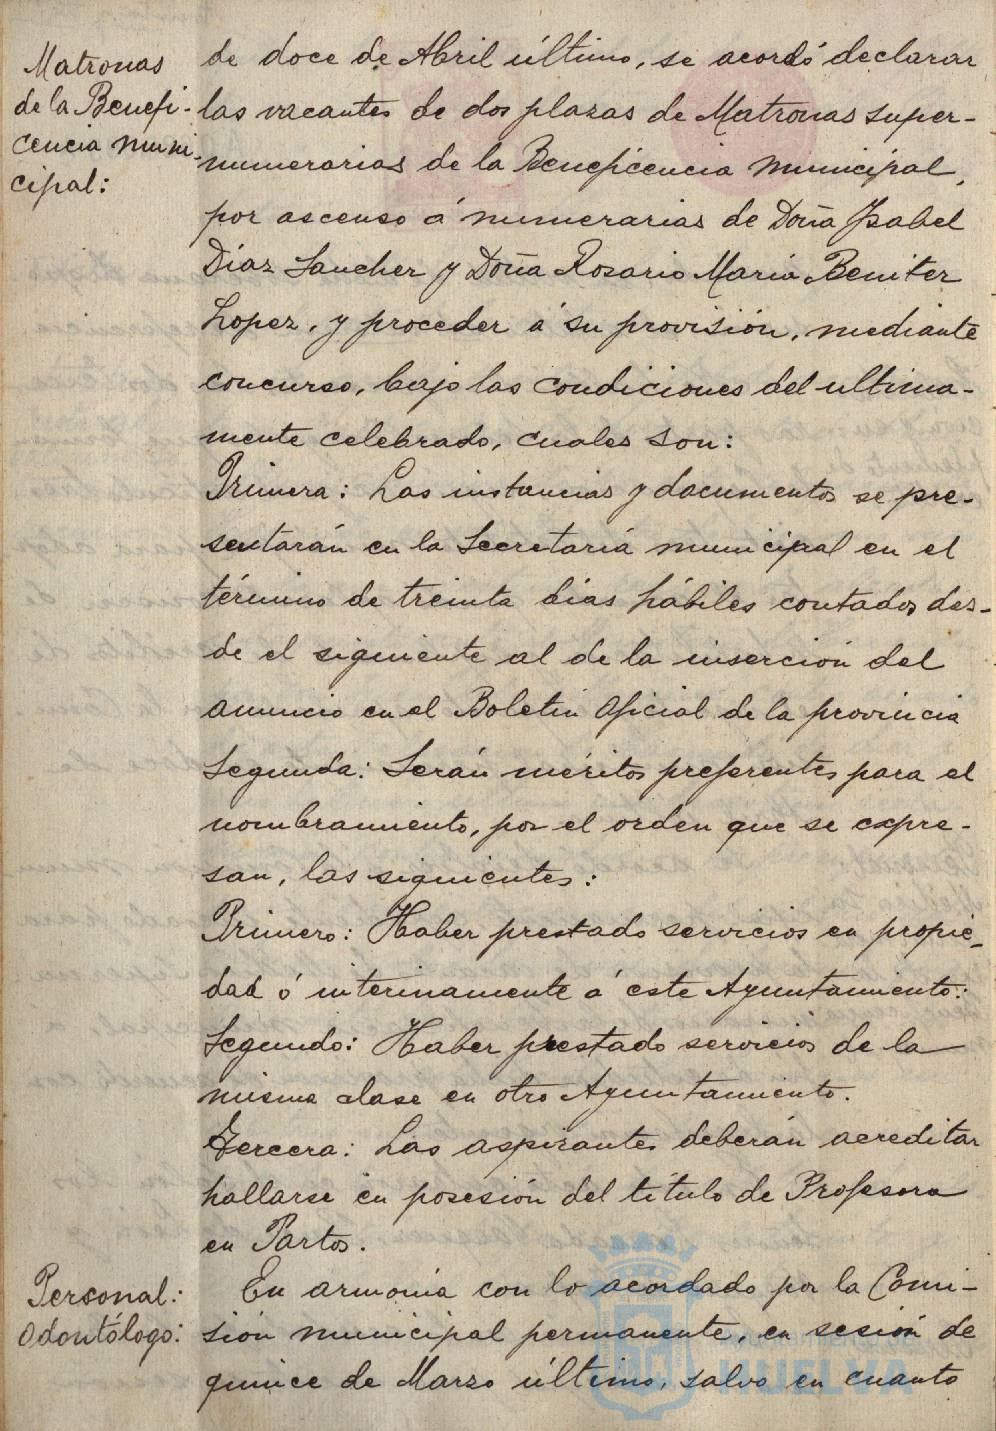 Matronas
de la Benefi-
cencia muni-
cipal:
de doce de Abril último, se acordó declarar
las vacantes de dos plazas de Matronas super-
numerarias de la Beneficencia municipal,
por ascenso á numerarias de Doña Isabel
Díaz Sanchez y Doña Rosario María Benitez
Lopez, y proceder á su provisión, mediante
concurso, bajo las condiciones del ultima-
mente celebrado, cuales son:
Primera: Las instancias y documentos se pre-
sentarán en la Secretaría municipal en el
término de treinta días hábiles contados des-
de el siguiente al de la inserción del
anuncio en el Boletín Oficial de la provincia
Segunda: Serán méritos preferentes para el
nombramiento, por el orden que se expre-
san, las siguientes:
Primero: Haber prestado servicios en propie-
dad ó interinamente á este Ayuntamiento:
Segundo: Haber prestado servicios de la
misma clase en otro Ayuntamiento.
Tercera: Las aspirantes deberán acreditar
hallarse en posesión del título de Profesora
en Partos.
Personal:
Odontólogo:
En armonía con lo acordado por la Comi-
sión municipal permanente, en sesión de
quince de Marzo último, salvo en cuanto
HUELVA